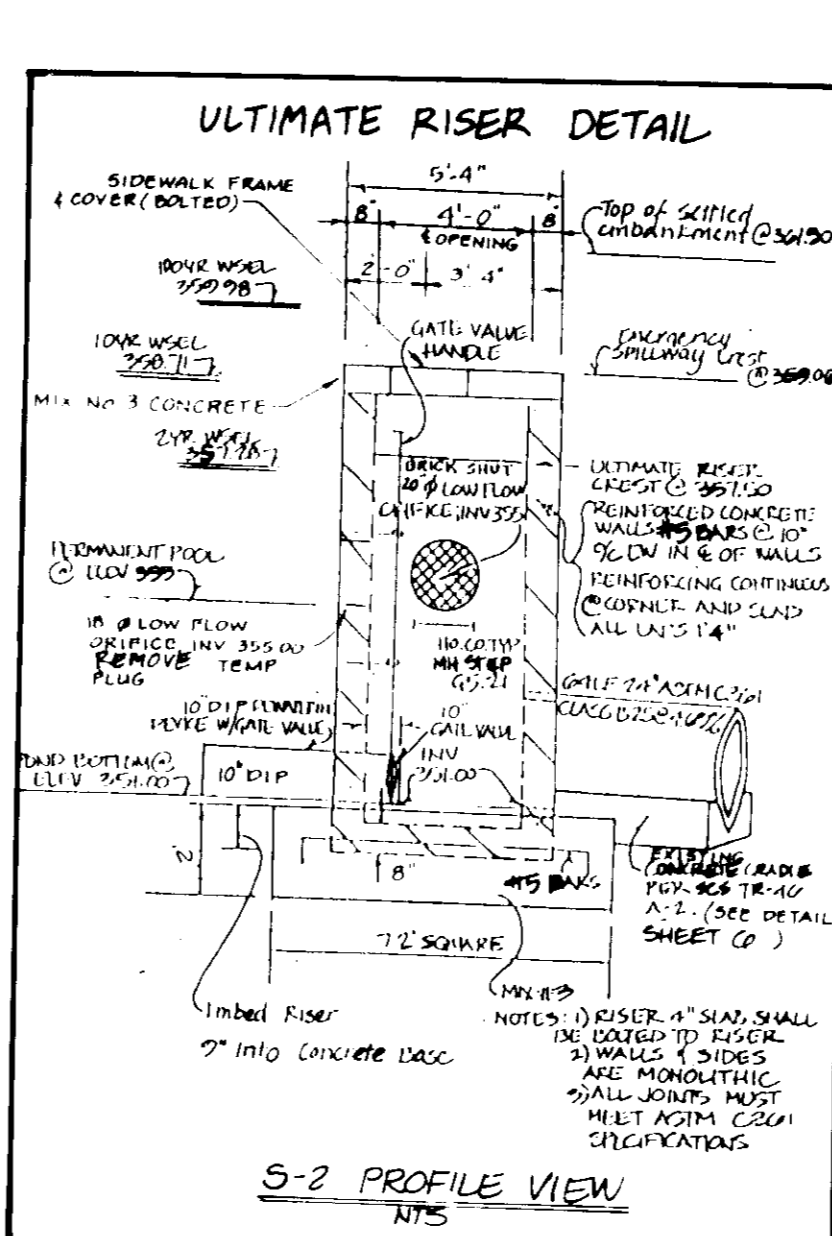 ULTIMATE RISER DETAIL
5'-4"
SIDEWALK FRAME
& COVER (BOLTED)
8" 4'-0" 8"
℄ OPENING
2'-0" 3'4"
Top of settled
embankment @ 361.90
100YR WSEL
359.98
10YR WSEL
358.71
GATE VALVE
HANDLE
Emergency
Spillway Crest
@
MIX No 3 CONCRETE
2YR WSEL
BRICK SHUT
20" Ø LOW FLOW
ORIFICE, INV 355
ULTIMATE RISER
CREST @ 357.50
REINFORCED CONCRETE
WALLS #5 BARS @ 10"
O/C EW IN ℄ OF WALLS
REINFORCING CONTINUOUS
@ CORNER AND SLAB
ALL 1'4"
PERMANENT POOL
@ ELEV
18 Ø LOW FLOW
ORIFICE INV 355.00
REMOVE TEMP
PLUG
HO.CO.TYP
MH STEP
G5.21
24" ASTM
CLASS
10" DIP
W/GATE VALVE
10"
GATE VALVE
INV
351.00
POND BOTTOM @
ELEV 351.00
10" DIP
2'
8"
#5 BARS
EXISTING
CONCRETE CRADLE
PER SCS TR-46
A-2. (SEE DETAIL
SHEET 6)
7.2' SQUARE
MIX #3
Imbed Riser
9" Into Concrete Base
NOTES: 1) RISER 4" SLAB SHALL
BE BOLTED TO RISER
2) WALLS & SIDES
ARE MONOLITHIC
3) ALL JOINTS MUST
MEET ASTM C361
SPECIFICATIONS
S-2 PROFILE VIEW
NTS